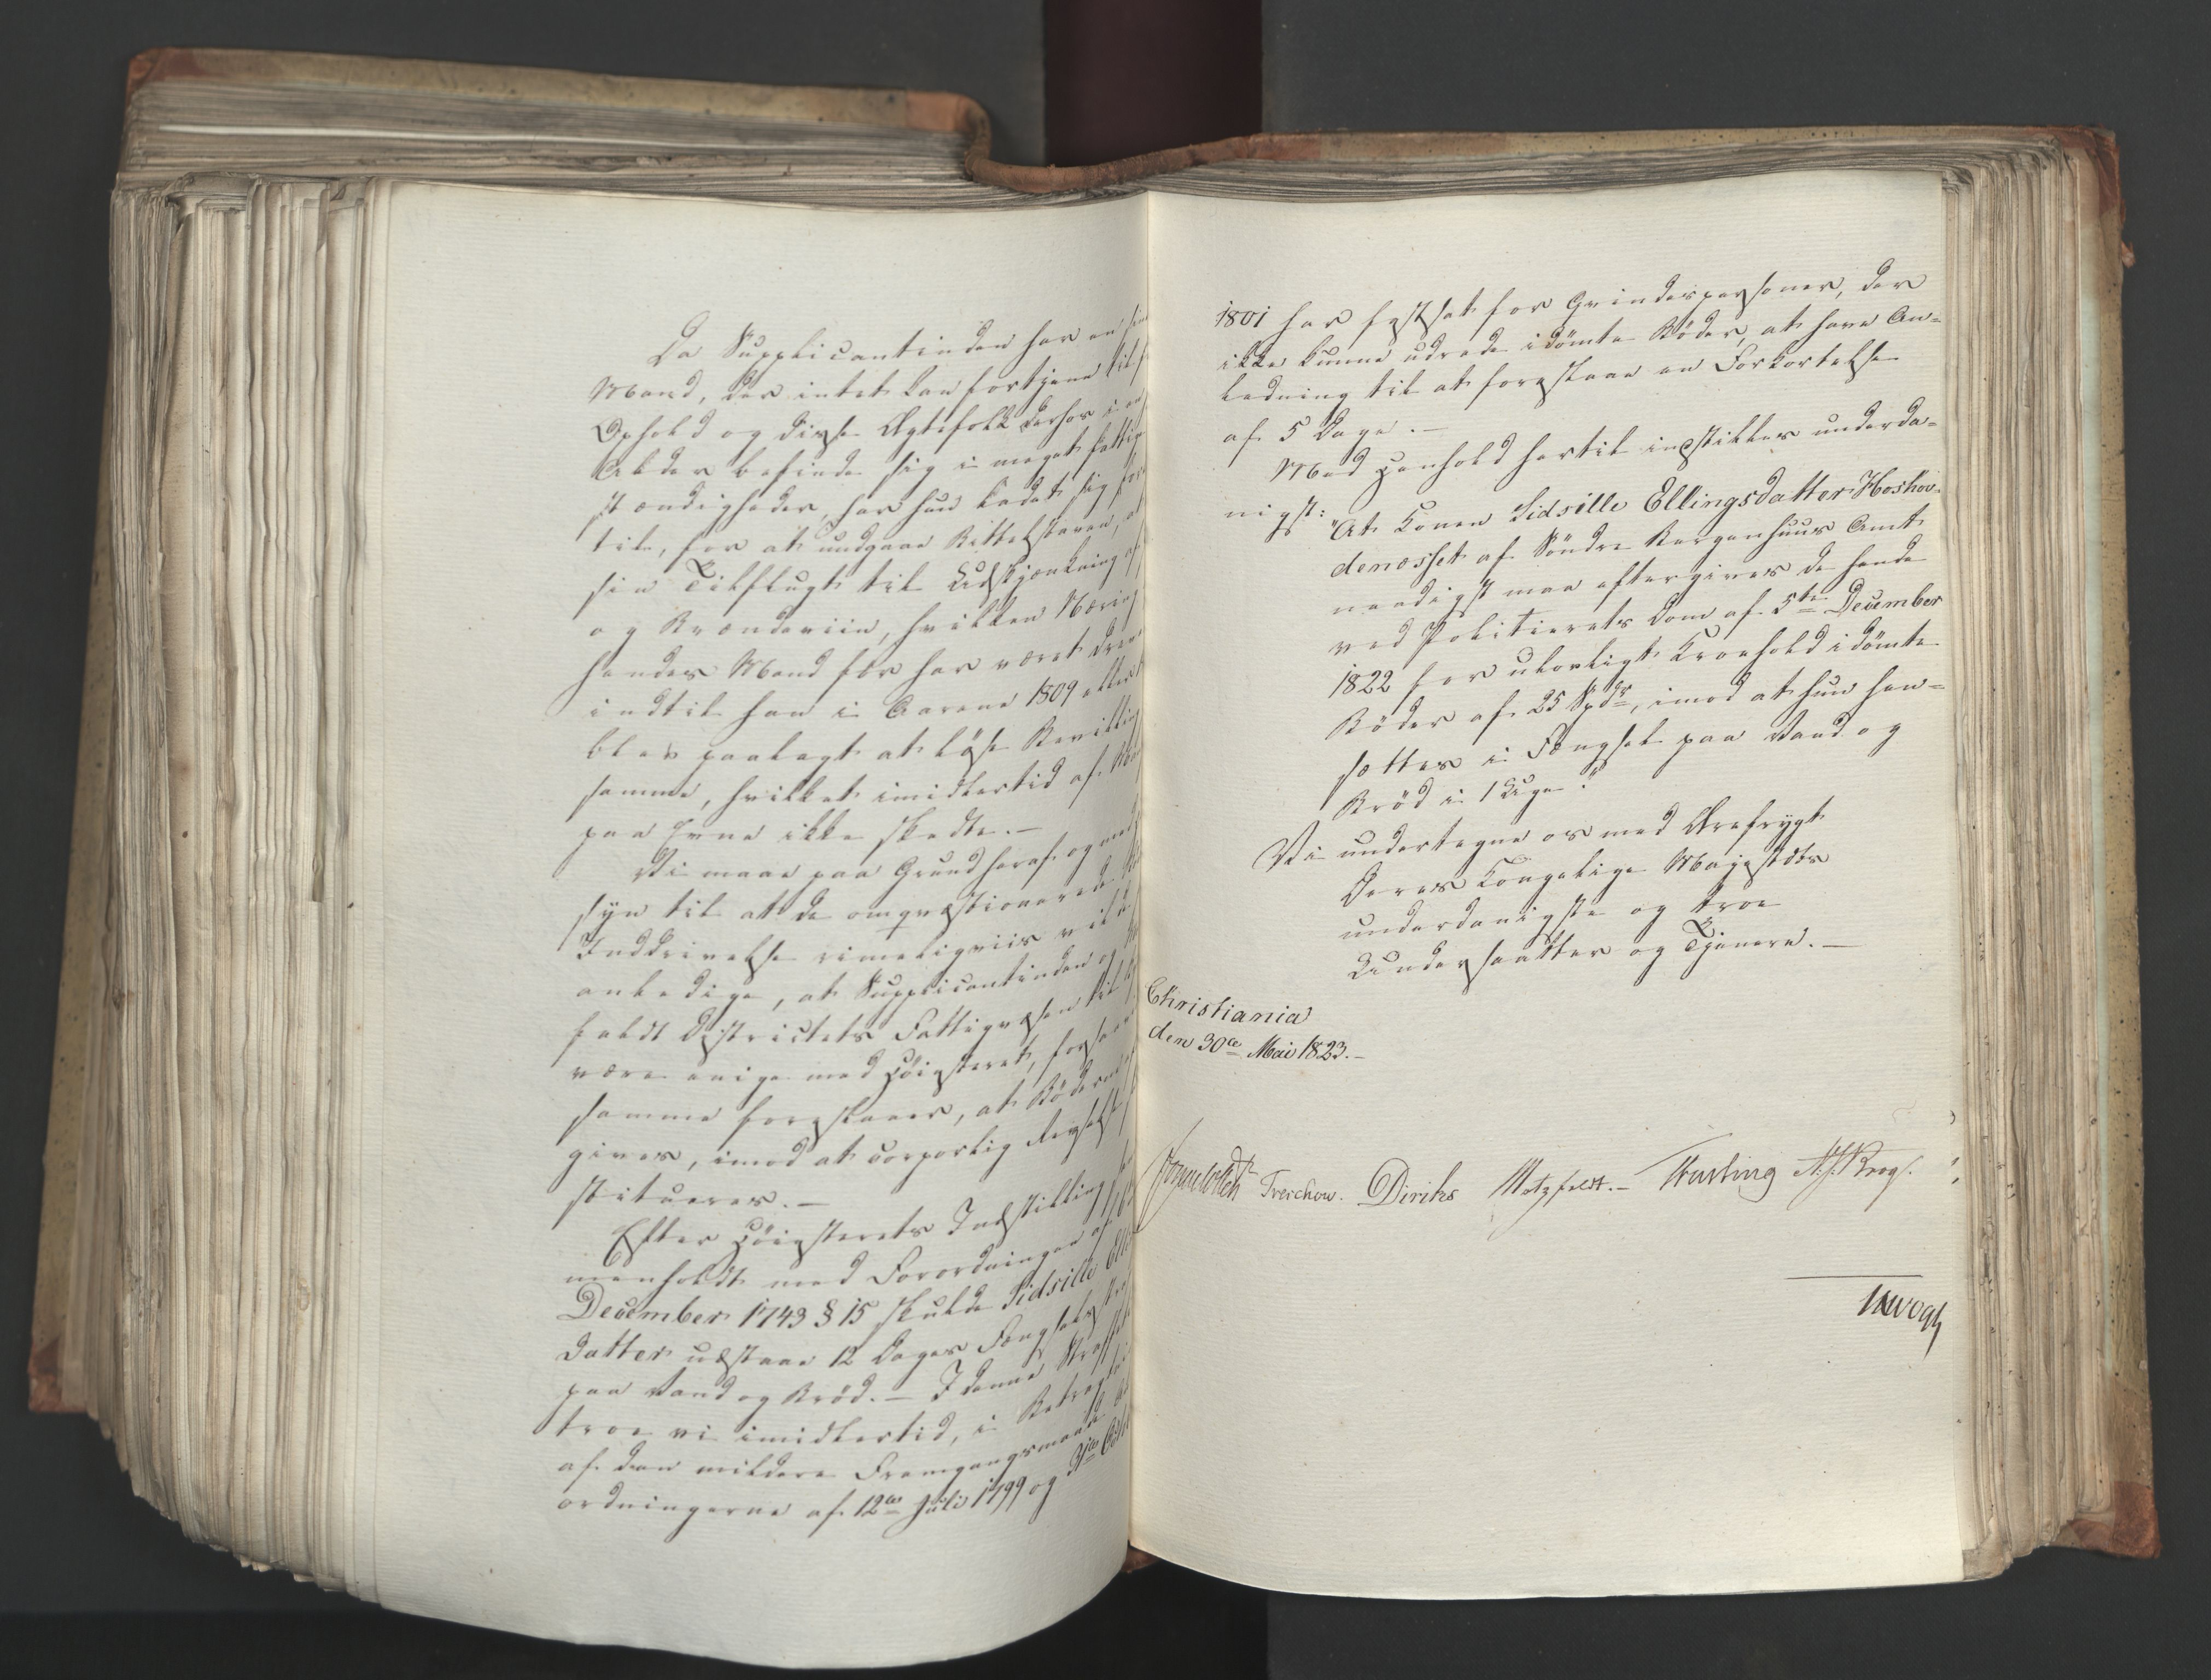 Da Supplicantinden har en
Mand, der intet kan fortjene til
Ophold og disse Ægtefolk derhos i en
Alder befinde sig i meget
stændigheder, har hun ladet sig
til, for at undgaae Bettelstaven, at
sin Tilflugt til Udskjænkning af
og Brændeviin, hvilken Næring
hendes Mand før har været
indtil han i Aarene 1809 eller
blev paalagt at løse Bevilling
samme, hvilket imidlertid af
paa Evne ikke skedte.—
Vi maae paa Grund heraf og med
syn til at de omqvæstionerede
Inddrivelse rimeligviis vil
anledige, at Supplicantinden og
faldt Districtets Fattigvæsen til
være enige med Höiesteret, forsaavidt
samme foreslaaer, at Böderne
gives, imod at corporlig Revselse
stitueres.—
Efter Höiesterets Indstilling
menholdt med Forordningen af
December 1743 § 15 skulde Sidsille Ellings
datter udstaae 12 Dages Fængsel
paa Vand og Bröd.— I denne Straffe
troe vi imidlertid, i Betragtning
af den mildere Fremgangsmaade
ordningerne af 12te Juli 1799 og
1801 har fastsat for Qvindespersoner, der
ikke kunne udrede idömte Böder, at have An=
ledning til at foreslaae en Forkortelse
af 5 Dage.—
Med Henhold hertil indstilles underda=
nigst:
"At Konen Sidsille Ellingsdatter Hoshov=
denæsset af Söndre Bergenhuus Amt
naadigst maa eftergives de hende
ved Politierets Dom af 5te December
1822 for ulovligt Kroehold idömte
Böder af 25 Spdr, imod at hun hen=
sættes i Fængsel paa Vand og
Bröd i 1 Uge."
Vi undertegne os med Ærefrygt
Deres Kongelige Majestæts
underdanigste og troe
Undersaatter og Tjenere.—
Christiania
den 30te Mai 1823.—
Treschow. Diriks Motzfeldt.— Krogh.